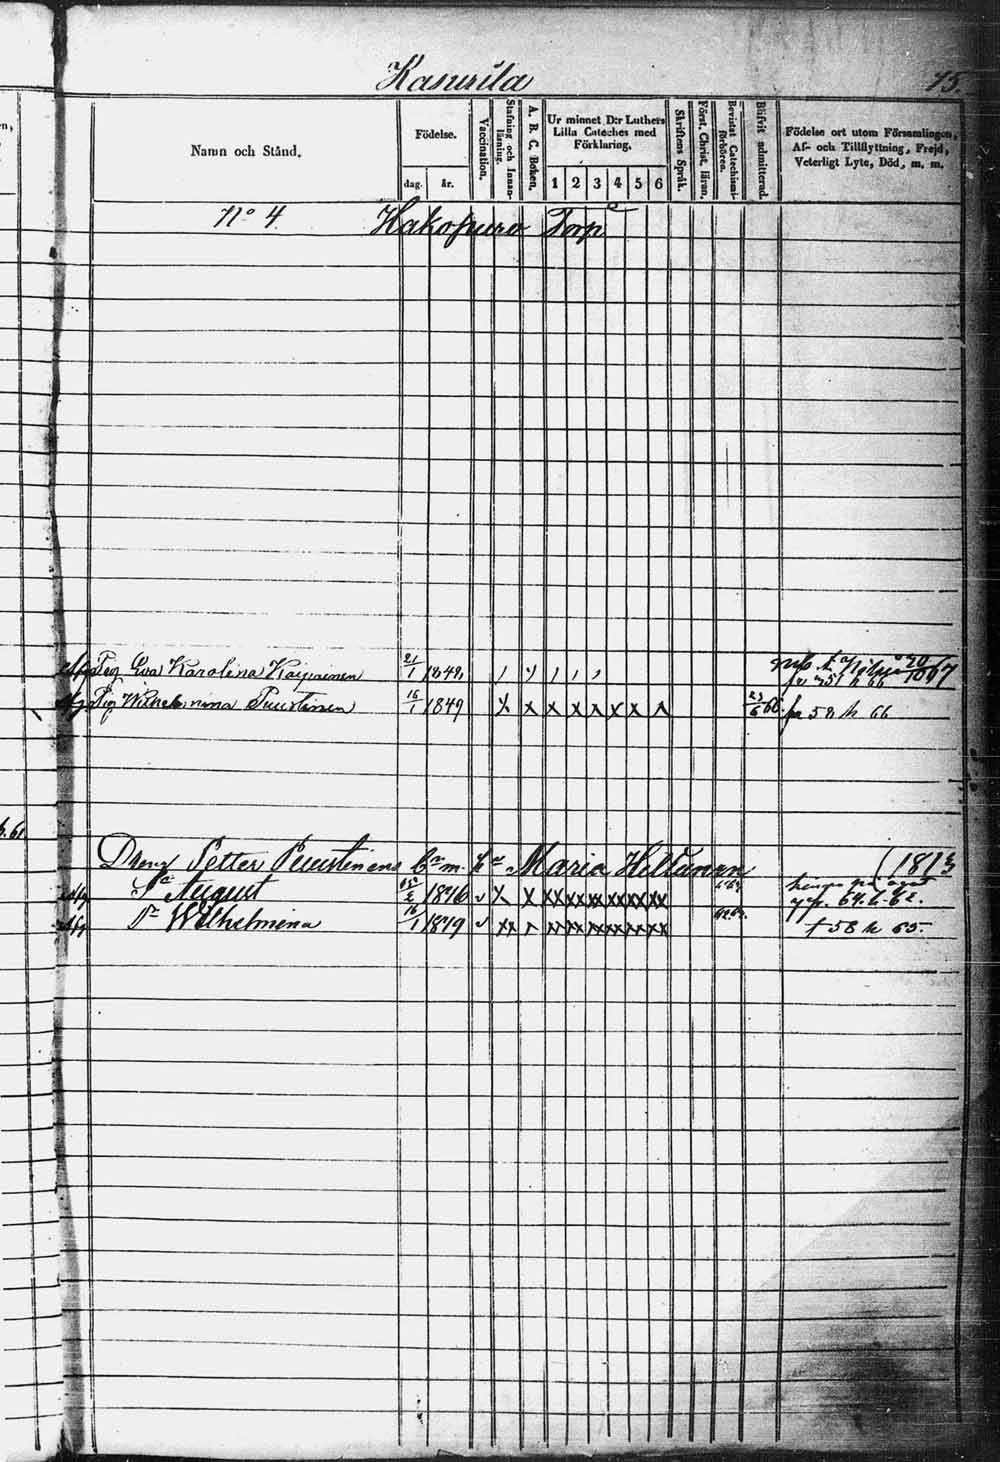 Kasurila 75.
Namn och Stånd.
Födelse.
dag. år.
Vaccination.
Stafning och Innanläsning.
A. B. C. Boken.
Ur minnet D:r Luthers Lilla Cateches med Förklaring.
1 2 3 4 5 6
Skriftens Språk.
Först. Christ. läran.
Bevistat Catechismiförhören.
Blifvit admitterad.
Födelse ort utom Församlingen, Af- och Tillflyttning, Frejd, Veterligt Lyte, Död, m. m.
No 4 Hakopuro Torp
Pig Eva Karolina Kaipainen 21/1 1849 20/10 67
fr 251 h 66
Pig Wilhelmina Puustinen 16/1 1849 x x x x x x x 23/6 68 fr 58 h 66
p. 61
Dreng Petter Puustinens Maria Heltunen (1813
August 1846 x x xx xx xx xx xx xx 64. h. 62.
Wilhelmina 16/1 1849 xx xx xx xx xx xx xx 58 h 65.